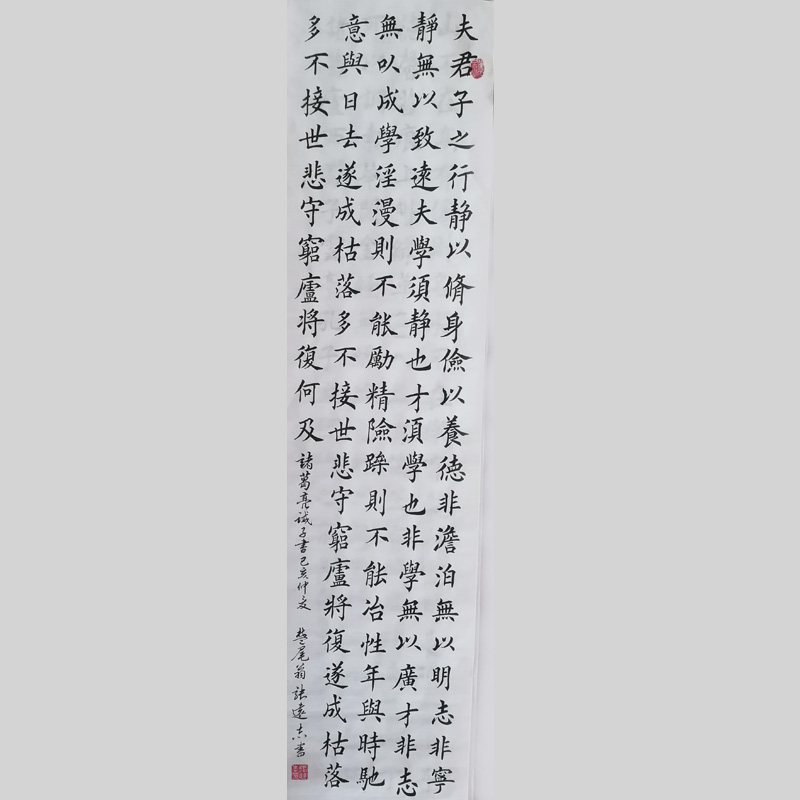 夫君子之行静以脩身儉以養德非澹泊無以明志非寧
靜無以致遠夫學須静也才須學也非學無以廣才非志
無以成學淫漫則不能勵精險躁則不能冶性年與時馳
意與日去遂成枯落多不接世悲守窮廬將復遂成枯落
多不接世悲守窮廬将復何及
諸葛亮诫子書己亥仲夏 楚尾翁 張遠志書